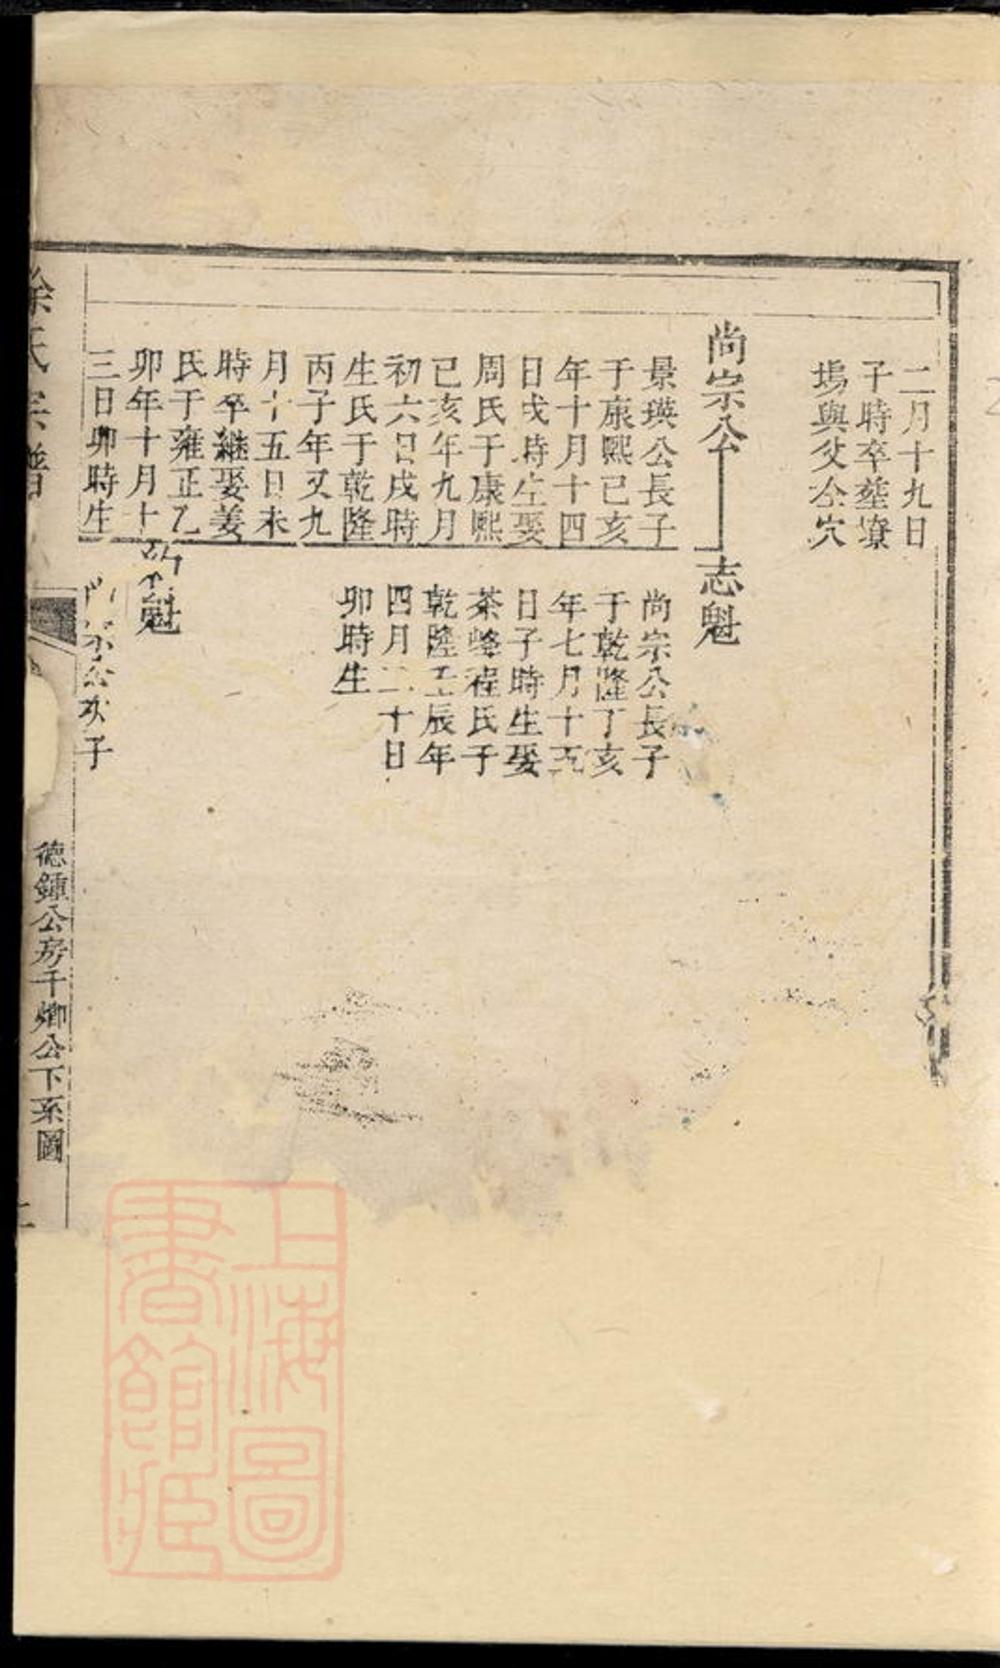 二月十九日
子時卒塟㙩
塢與父仝穴
尚宗公
景瑛公長子
于康熙己亥
年十月十四
日戌時生娶
周氏于康熙
己亥年九月
初六日戌時
生氏于乾隆
丙子年又九
月十五日未
時卒継娶姜
氏于雍正乙
卯年十月十
三日卯時生
志魁
尚宗公長子
于乾隆丁亥
年七月十五
日子時生娶
茶峰程氏于
乾隆壬辰年
四月二十日
卯時生
魁
宗公次子
徐氏宗譜
德鍾公房千卿公下系圖
上海圖
書館藏